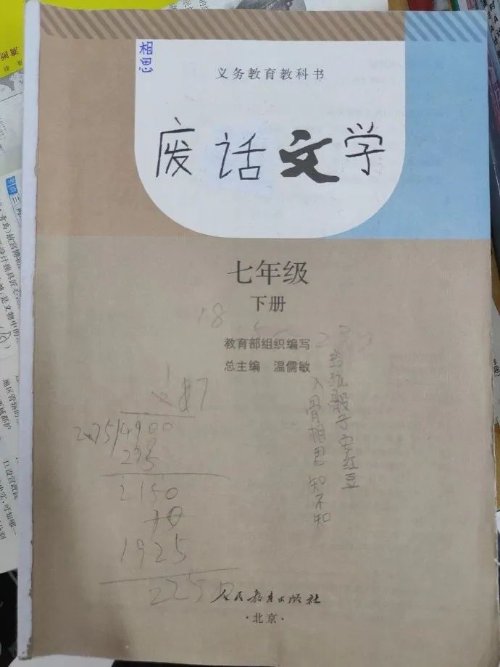 相思
义务教育教科书
废话文学
七年级
下册
18
教育部组织编写
总主编 温儒敏
玲珑骰子安红豆
入骨相思知不知
4900
2150
1925
225
人民教育出版社
·北京·